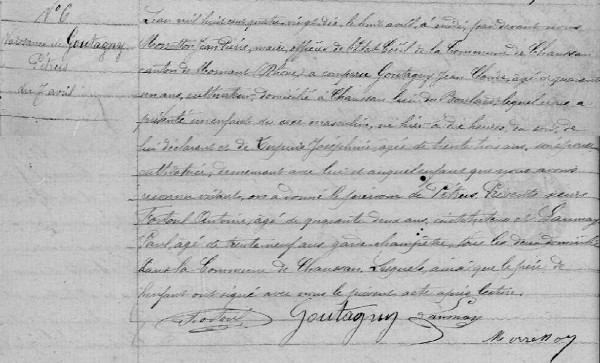 N° 6
Naissance de Goutagny
Pétrus
du 7 avril
L'an mil huit cent quatre vingt dix, le huit avril, à midi, par devant nous
Jean Pierre, maire, officier de l'état Civil de la Commune de Chaussan
canton de Mornant (Rhône) a comparu Goutagny Jean Claude, âgé de quarante
un ans, cultivateur, domicilié à Chaussan lieu du lequel nous a
présenté un enfant du sexe masculin, né hier à dix heures, du soir, de
lui déclarant et de Joséphine âgée de trente trois ans, son épouse
cultivatrice, demeurant avec lui et auquel enfant que nous avons
reconnu vivant, on a donné le prénom de Pétrus. Présents sieurs
Antoine, âgé de quarante deux ans, instituteur et
Paul, âgé de trente neuf ans, garde champêtre, tous les deux domiciliés
dans la Commune de Chaussan. Lesquels ainsi que le père de
l'enfant ont signé avec nous le présent acte après lecture.
Goutagny